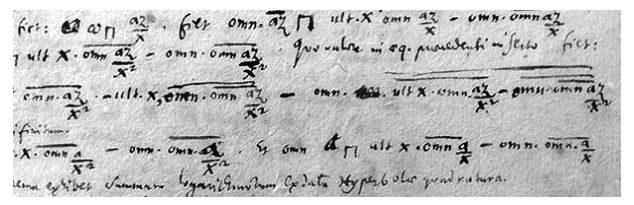 fiet: ω ⊓ az/x . fiet omn. az/x ⊓ ult. x omn az/x − omn. omn az/x
⊓ ult x. omn. az/x² − omn. omn az/x² . quo valore in eq. praecedenti inserto fiet:
omn. az/x² . −ult. x, omn. omn az/x² − omn. ult x. omn. az/x² − omn. omn. az/x²
x. omn a/x² − omn. omn. a/x² . Et omn ⊓ ult x. omn a/x − omn. omn. a/x
exhibet summam logarithmorum ex data Hyperbolae quadratura.